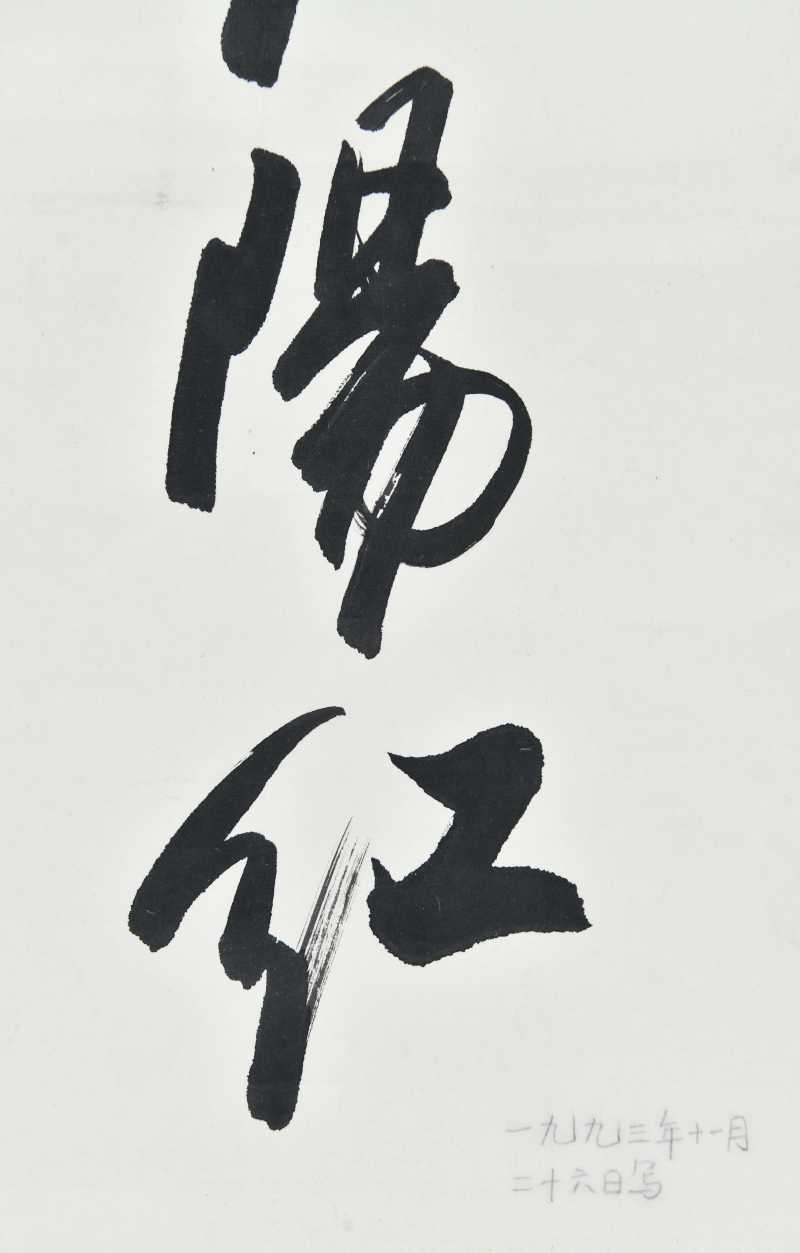 陽紅
一九九三年十一月
二十六日写